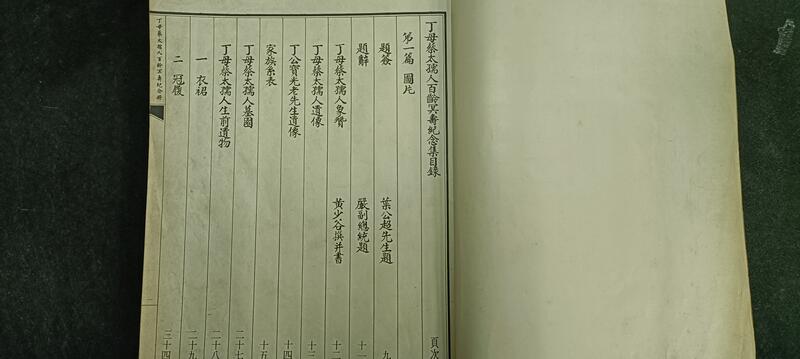 丁母蔡太孺人百齡冥壽紀念集目錄
頁次
第一篇 圖片
題簽 葉公超先生題 九
題辭 嚴副總統題 十一
丁母蔡太孺人象贊 黃少谷撰并書 十二
丁母蔡太孺人遺像 十三
丁公寶光老先生遺像 十四
家族系表 十五
丁母蔡太孺人墓園 二十七
丁母蔡太孺人生前遺物 二十八
一 衣裙 二十九
二 冠履 三十四
丁母蔡太孺人百齡冥壽紀念冊
一